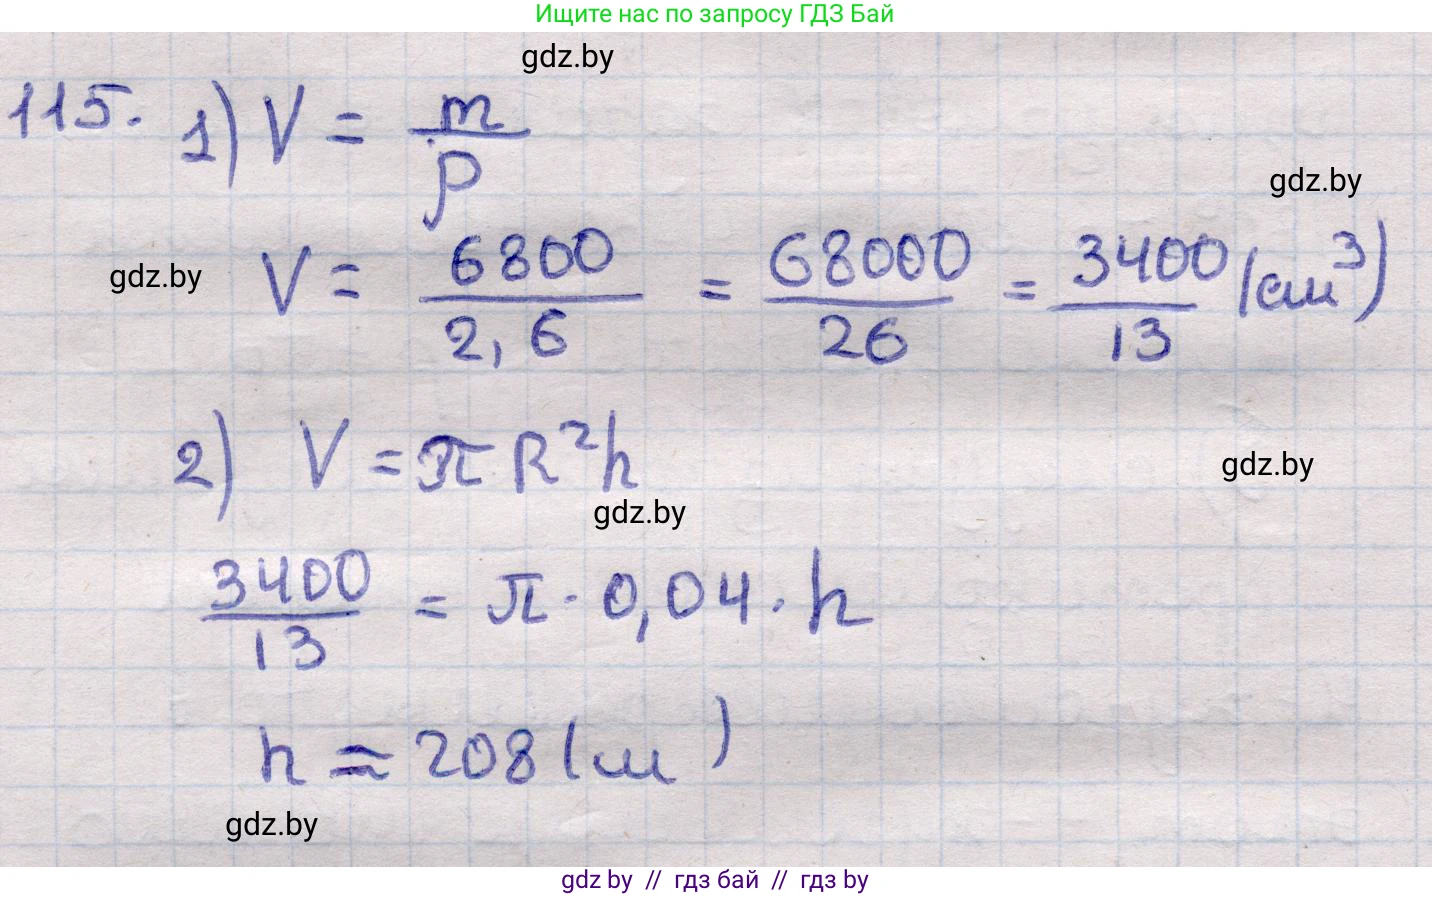 Ищите нас по запросу ГДЗ Бай
gdz.by
115. 1) V = m/ρ
gdz.by
gdz.by
V = 6800/2,6 = 68000/26 = 3400/13 (см³)
2) V = πR²h
gdz.by
gdz.by
3400/13 = π · 0,04 · h
h ≈ 208 (м)
gdz.by
gdz by // гдз бай // гдз by